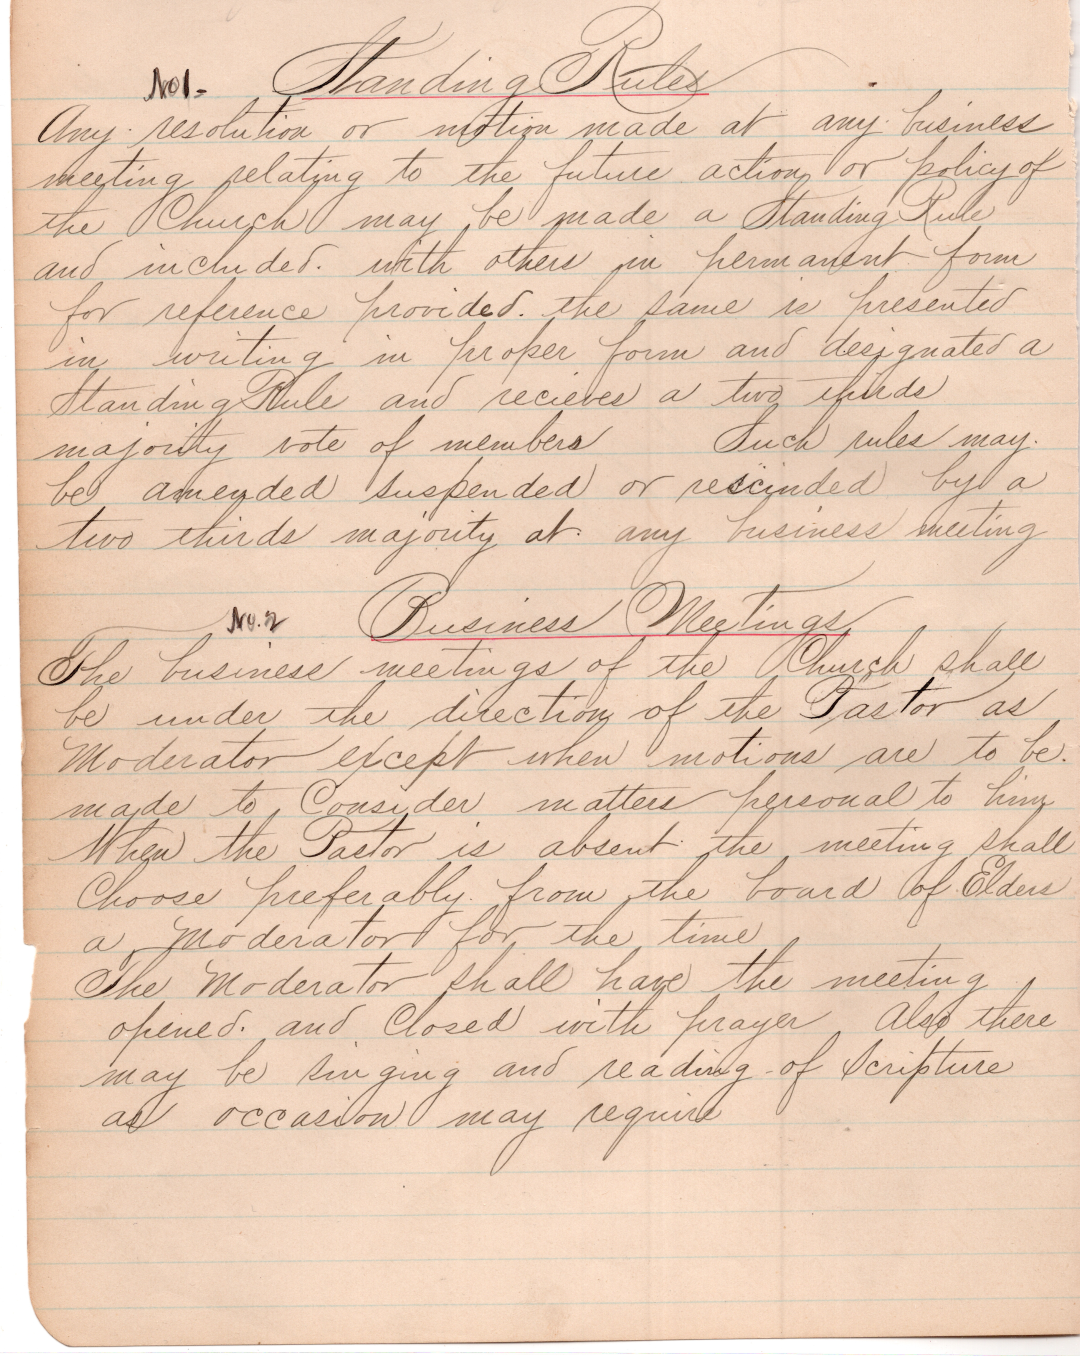 No 1. Standing Rules
Any resolution or motion made at any business
meeting relating to the future action or policy of
the Church may be made a Standing Rule
and included. with others in permanent form
for reference provided. the same is presented
in writing in proper form and designated a
Standing Rule and recieves a two thirds
majority vote of members Such rules may.
be amended suspended or rescinded by a
two thirds majority at. any business meeting
No. 2 Business Meetings
The business meetings of the Church shall
be under the direction of the Pastor as
Moderator except when motions are to be.
made to Consider matters personal to him
When the Pastor is absent the meeting shall
Choose preferably. from the board of Elders
a Moderator for the time
The Moderator shall have the meeting
opened. and Closed with prayer Also there
may be singing and reading of Scripture
as occasion may require